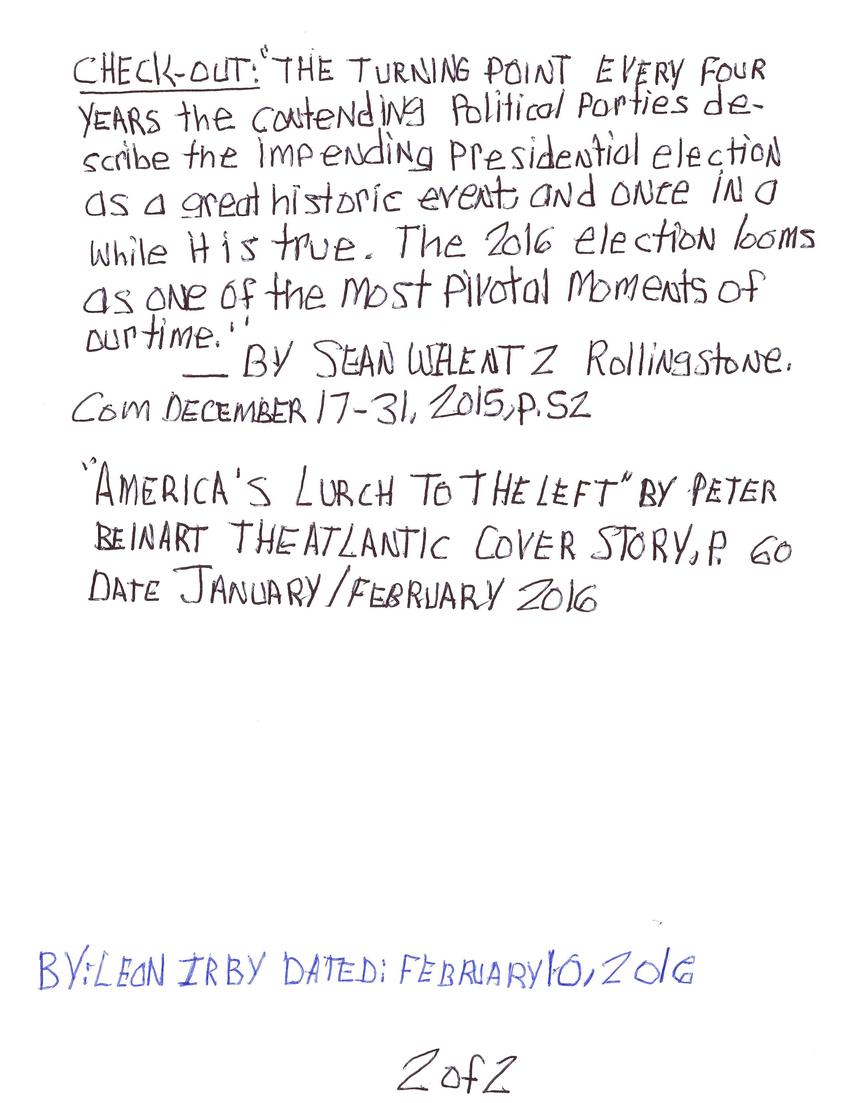 CHECK-OUT: "THE TURNING POINT EVERY FOUR
YEARS the contending Political Parties de-
scribe the impending presidential election
as a great historic event, and once in a
while it is true. The 2016 election looms
as one of the most pivotal moments of
our time."
— BY SEAN WILENTZ Rollingstone.
Com DECEMBER 17-31, 2015, p. 52
"AMERICA'S LURCH TO THE LEFT" BY PETER
BEINART THE ATLANTIC COVER STORY, P. 60
DATE JANUARY/FEBRUARY 2016
BY: LEON IRBY DATED: FEBRUARY 10, 2016
2 of 2